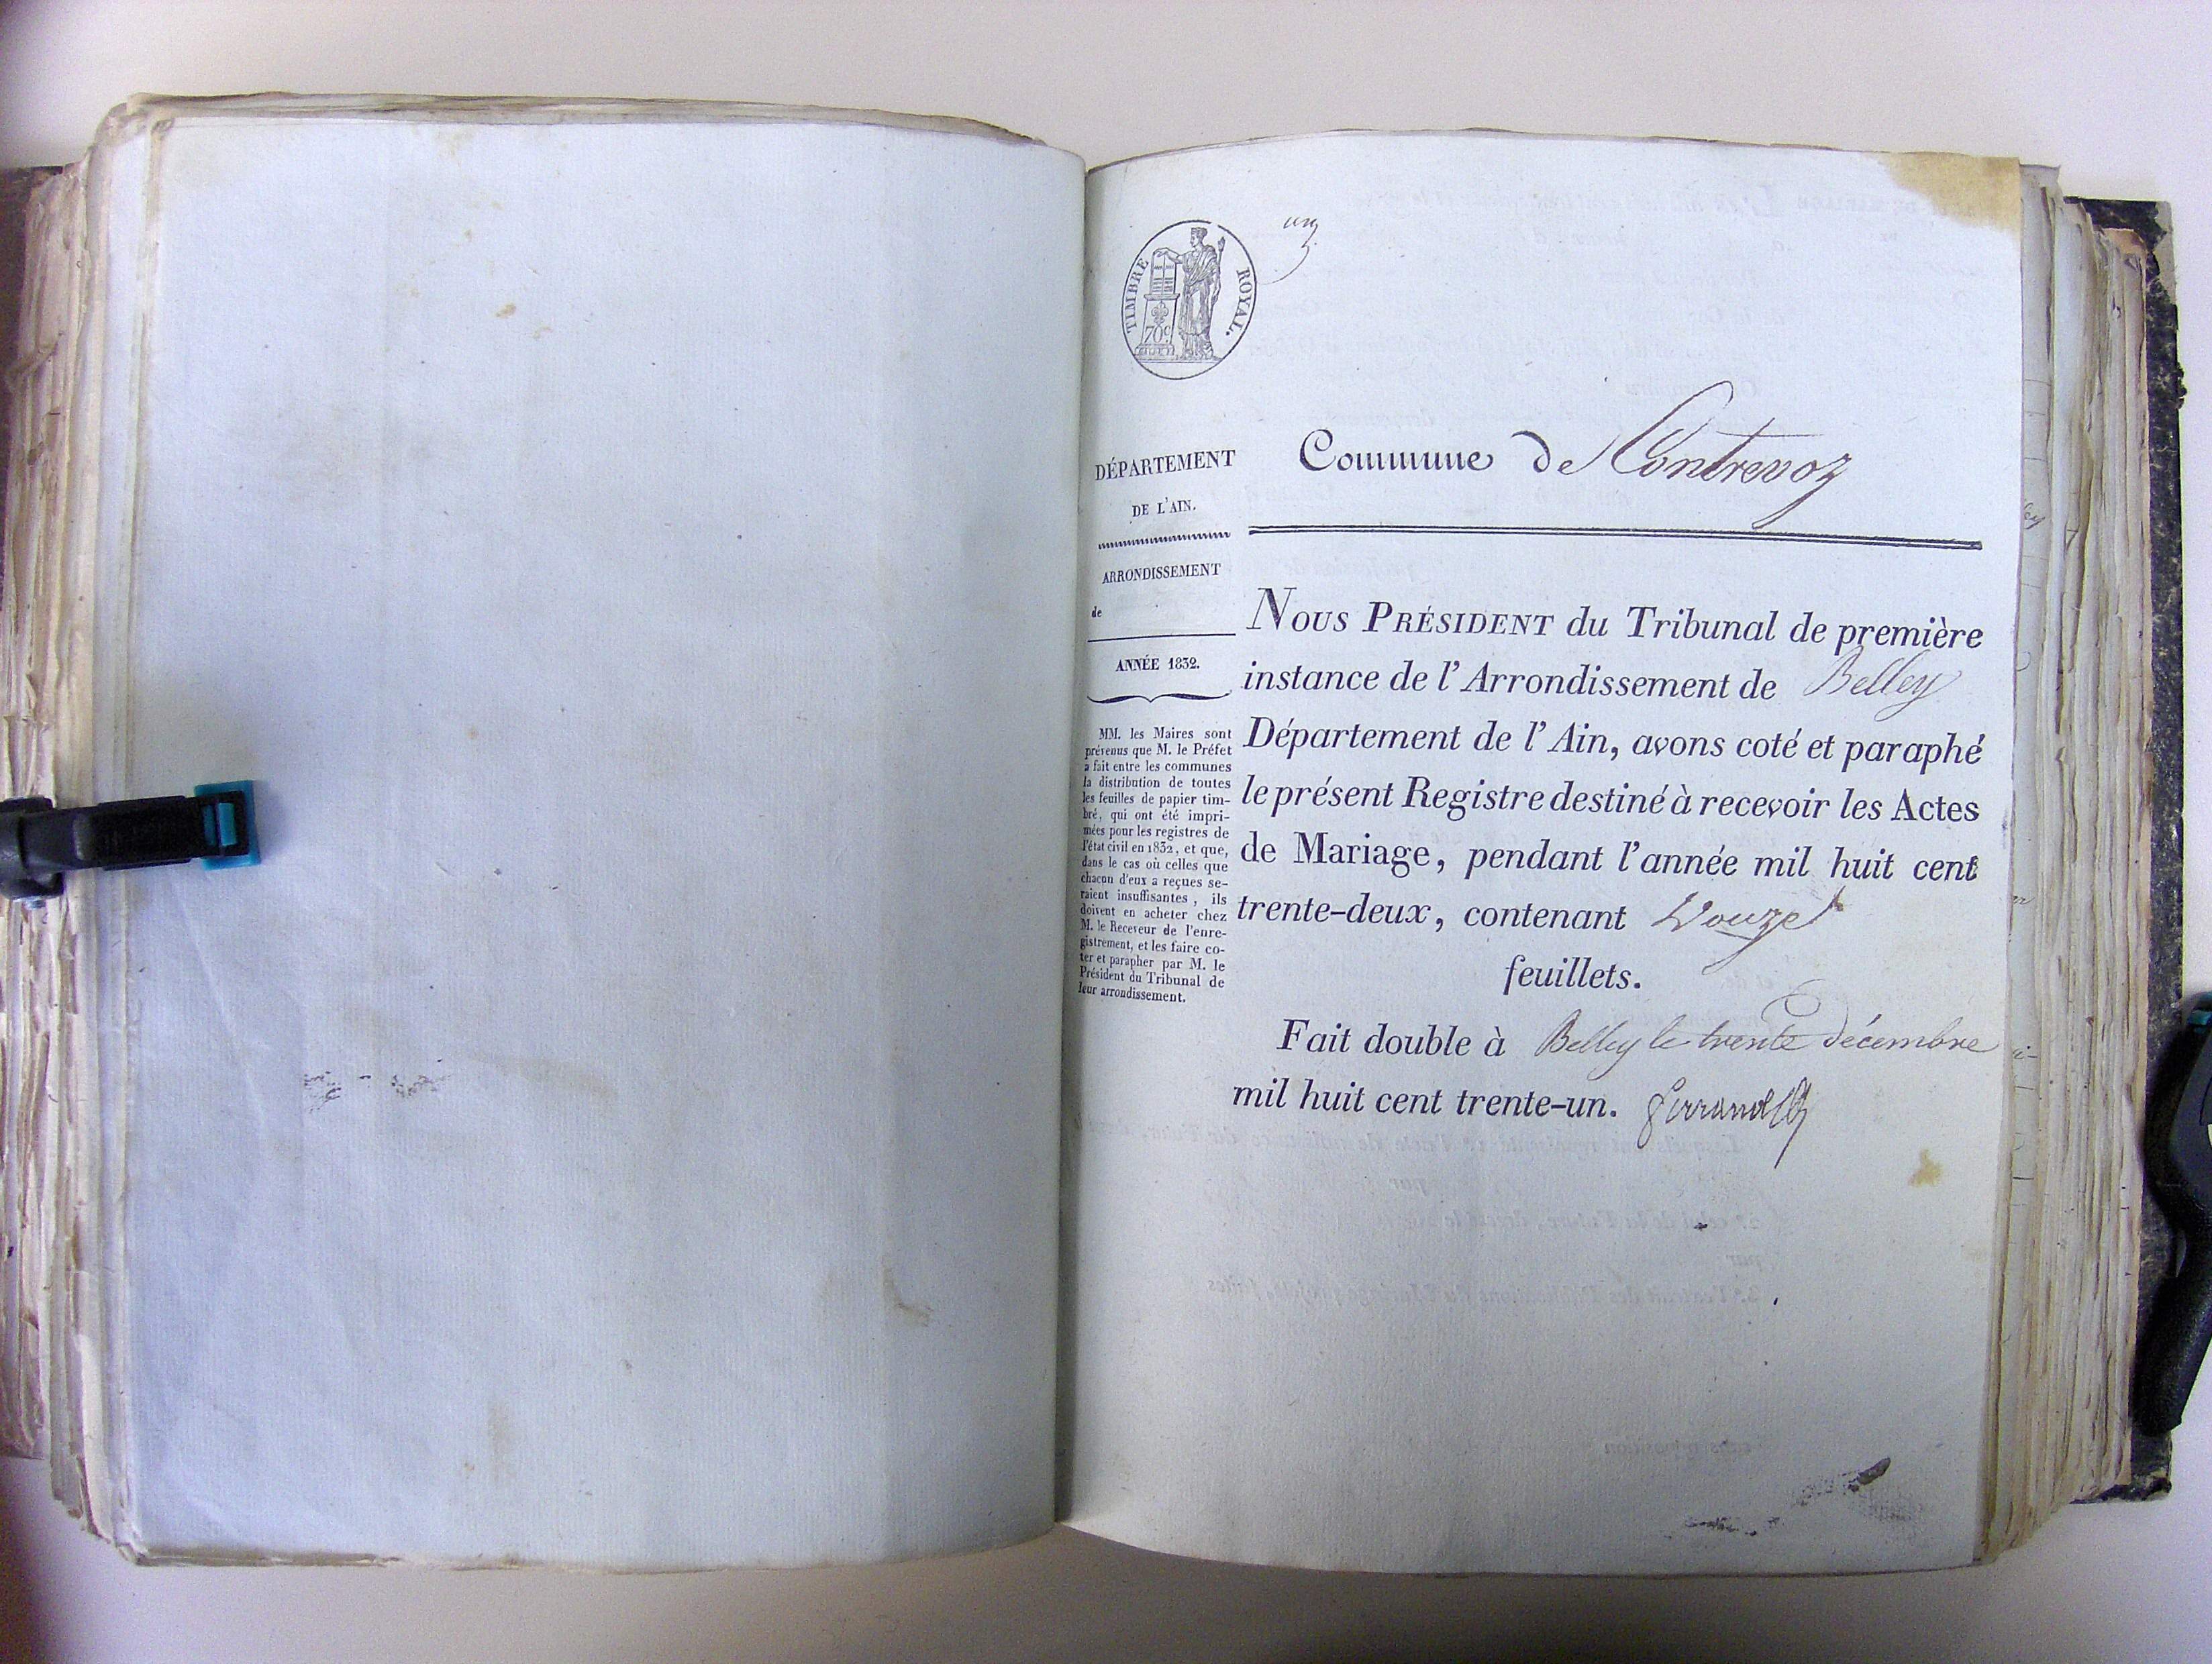 un
TIMBRE ROYAL.
70c
DÉPARTEMENT
DE L'AIN.
ARRONDISSEMENT
de
ANNÉE 1832.
MM. les Maires sont
prévenus que M. le Préfet
a fait entre les communes
la distribution de toutes
les feuilles de papier tim-
bré, qui ont été impri-
mées pour les registres de
l'état civil en 1832, et que,
dans le cas où celles que
chacun d'eux a reçues se-
raient insuffisantes, ils
doivent en acheter chez
M. le Receveur de l'enre-
gistrement, et les faire co-
ter et parapher par M. le
Président du Tribunal de
leur arrondissement.
Commune de Contrevoz
NOUS PRÉSIDENT du Tribunal de première
instance de l'Arrondissement de Belley
Département de l'Ain, avons coté et paraphé
le présent Registre destiné à recevoir les Actes
de Mariage, pendant l'année mil huit cent
trente-deux, contenant Douze
feuillets.
Fait double à Belley le trente décembre
mil huit cent trente-un.